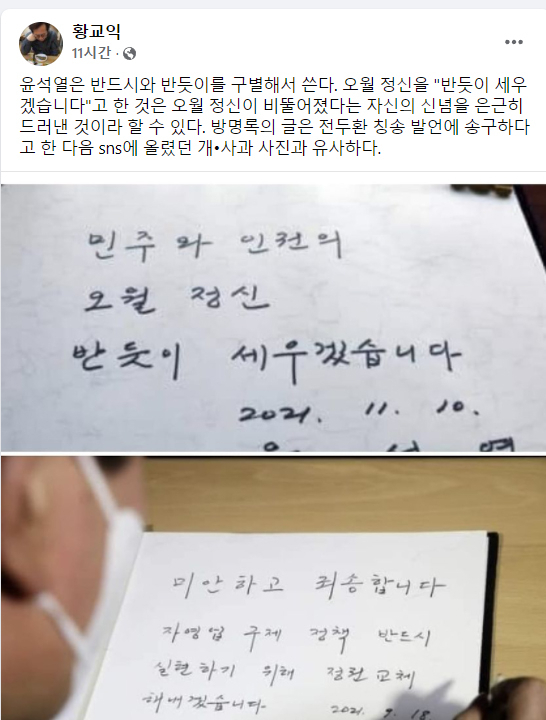 황교익
11시간 ·
윤석열은 반드시와 반듯이를 구별해서 쓴다. 오월 정신을 "반듯이 세우
겠습니다"고 한 것은 오월 정신이 비뚤어졌다는 자신의 신념을 은근히
드러낸 것이라 할 수 있다. 방명록의 글은 전두환 칭송 발언에 송구하다
고 한 다음 sns에 올렸던 개•사과 사진과 유사하다.
민주와 인권의
오월 정신
반듯이 세우겠습니다
2021. 11. 10.
윤 석 열
미안하고 죄송합니다
자영업 구제 정책 반드시
실현하기 위해 정권교체
해내겠습니다. 2021. 9. 18